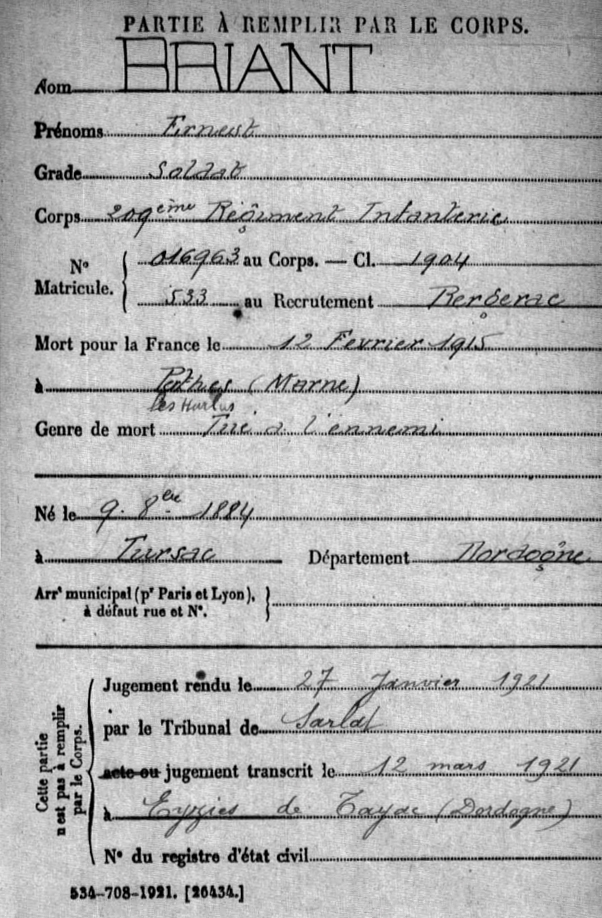 PARTIE À REMPLIR PAR LE CORPS.
Nom BRIANT
Prénoms Ernest
Grade Soldat
Corps 209ème Régiment Infanterie
N° Matricule. { 016963 au Corps. — Cl. 1904
533 au Recrutement Bergerac
Mort pour la France le 12 Février 1915
à Perthes (Marne)
les Hurlus
Genre de mort Tué à l'ennemi
Né le 9. 8bre 1884
à Tursac Département Dordogne
Arrt municipal (pr Paris et Lyon),
à défaut rue et N°. }
Cette partie n'est pas à remplir par le Corps. { Jugement rendu le 27 Janvier 1921
par le Tribunal de Sarlat
acte ou jugement transcrit le 12 mars 1921
à Eyzies de Tayac (Dordogne)
N° du registre d'état civil
534-708-1921. [26434.]